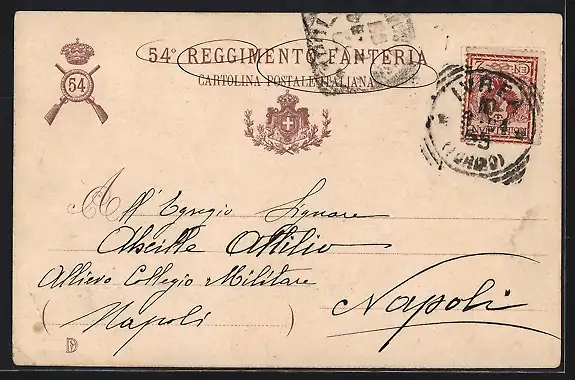 54º REGGIMENTO FANTERIA
CARTOLINA POSTALE ITALIANA
54
IVREA
(TORINO)
All' Egregio Signore
Abeille Attilio
Allievo Collegio Militare
(Napoli)
Napoli